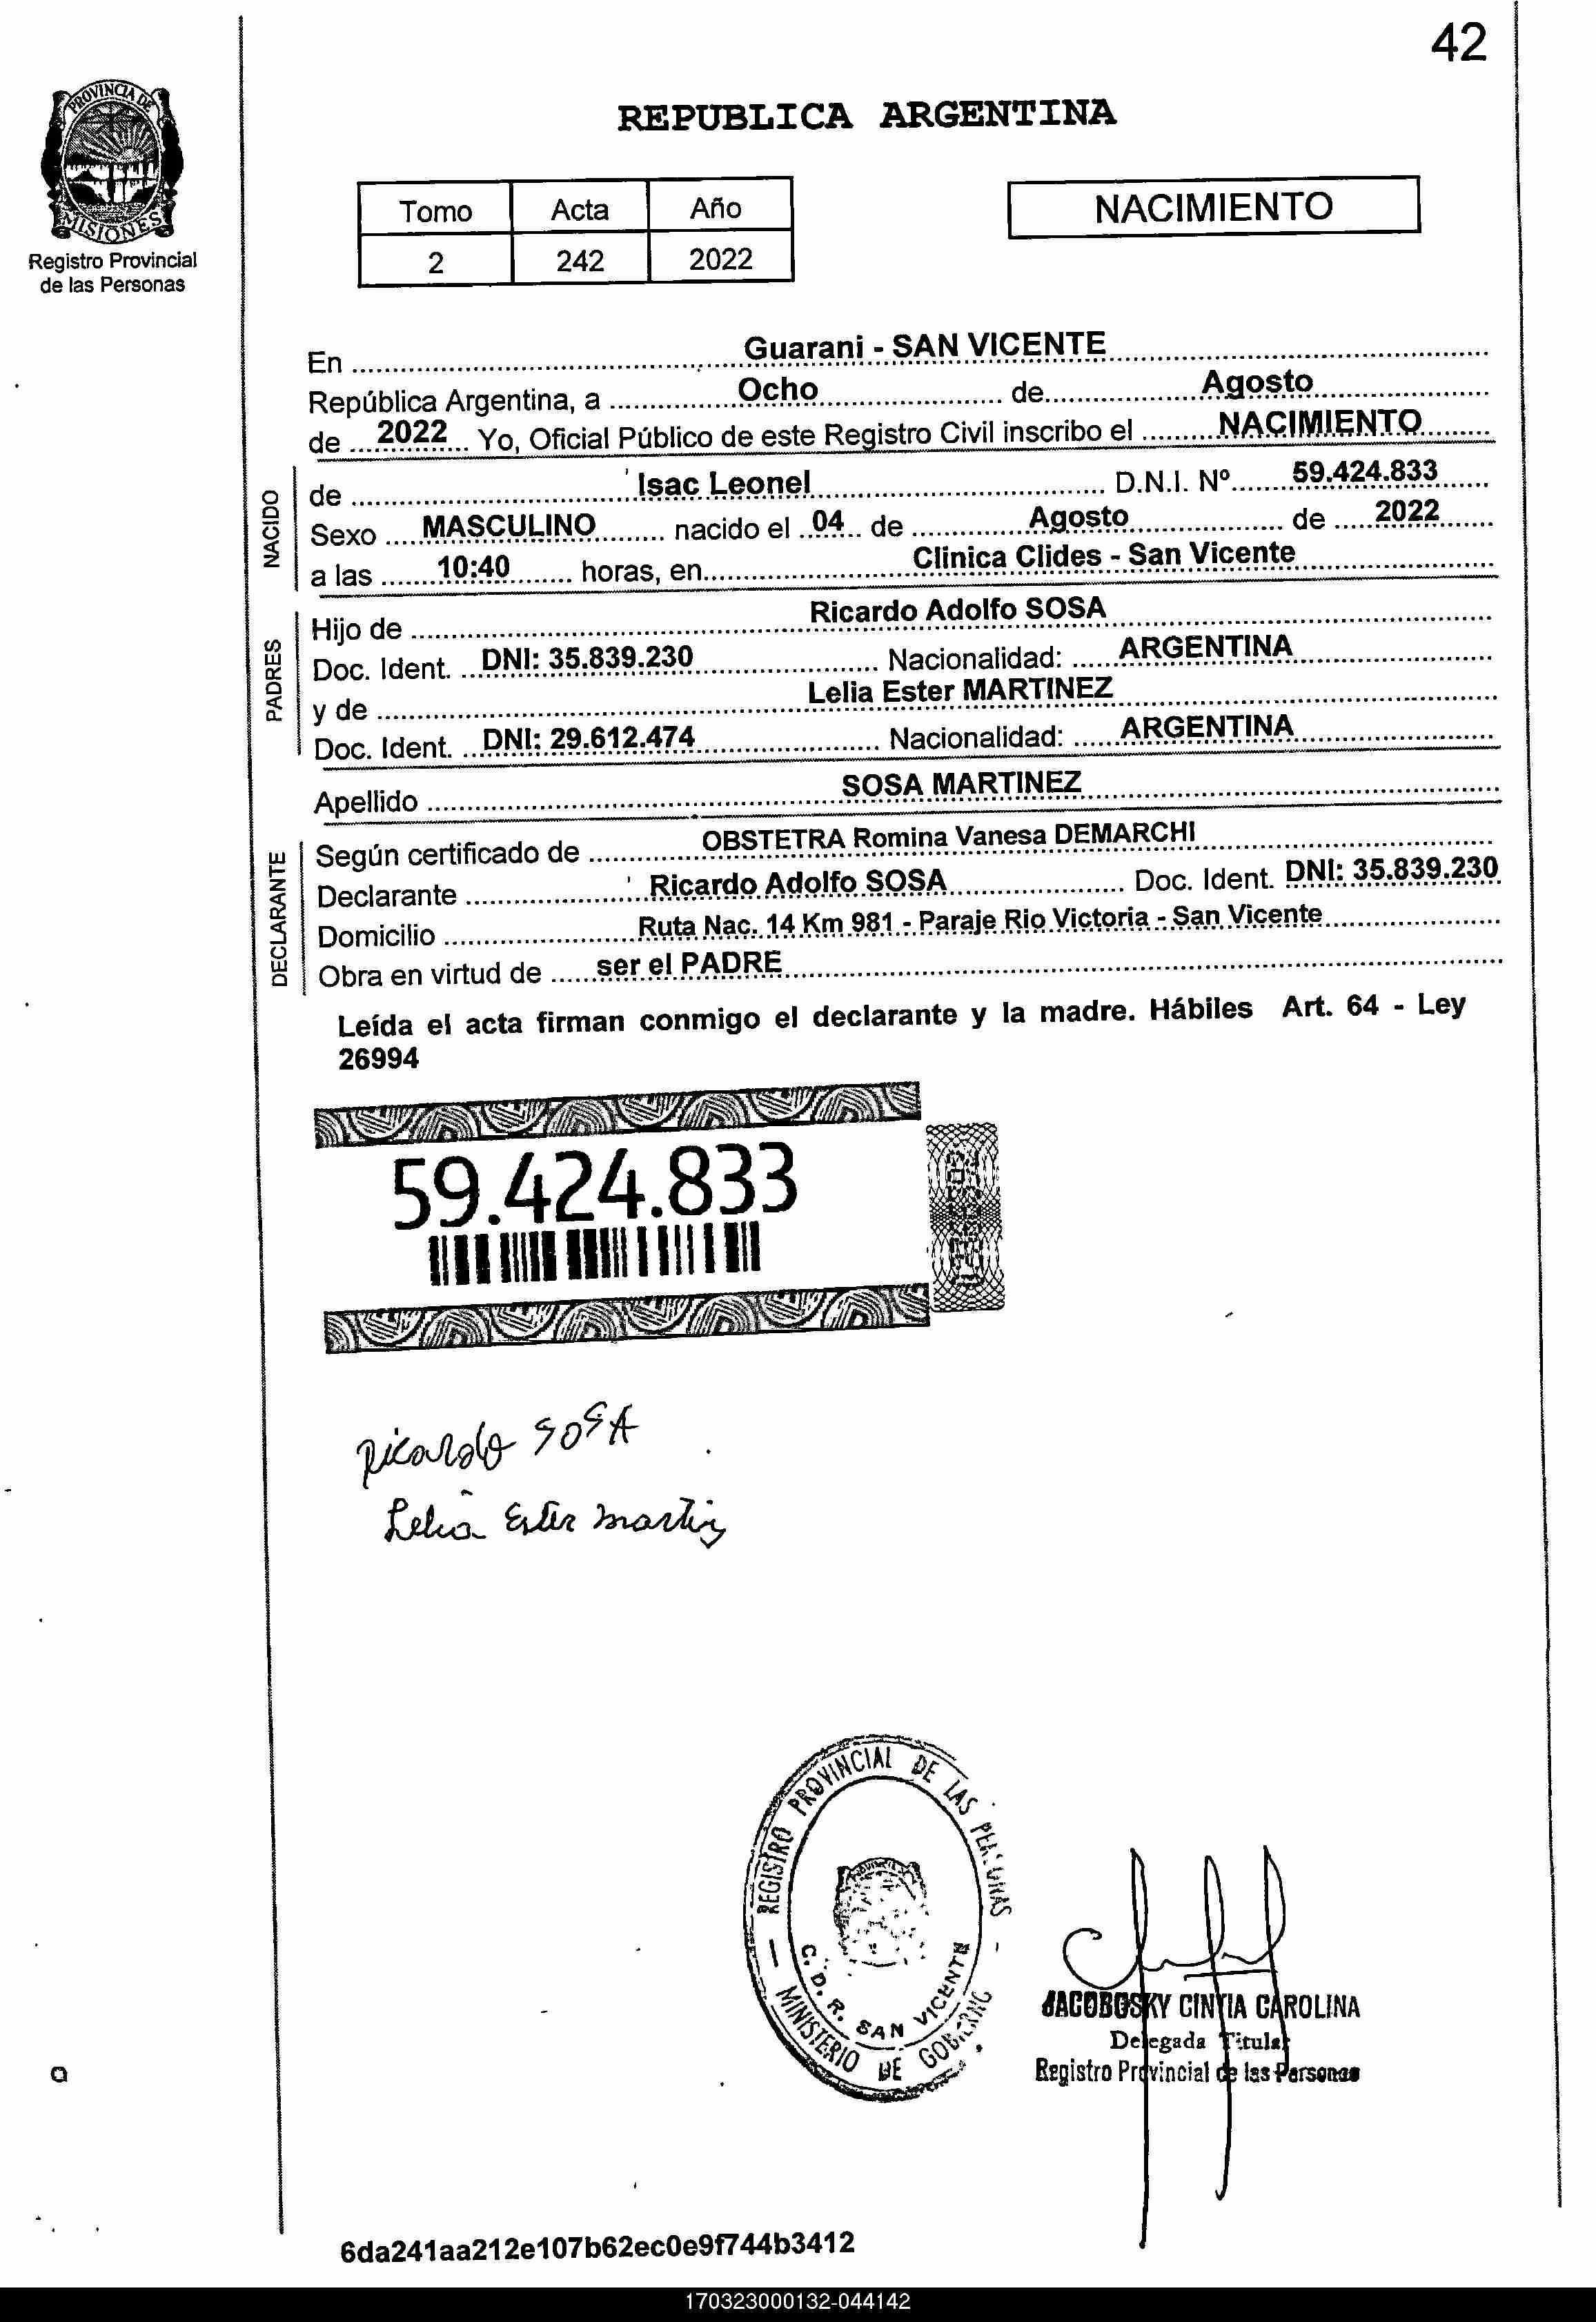 42
PROVINCIA DE
MISIONES
Registro Provincial
de las Personas
REPUBLICA ARGENTINA
Tomo Acta Año
2 242 2022
NACIMIENTO
En Guarani - SAN VICENTE
República Argentina, a Ocho de Agosto
de 2022 Yo, Oficial Público de este Registro Civil inscribo el NACIMIENTO
NACIDO
de Isac Leonel D.N.I. Nº 59.424.833
Sexo MASCULINO nacido el 04 de Agosto de 2022
a las 10:40 horas, en Clinica Clides - San Vicente
PADRES
Hijo de Ricardo Adolfo SOSA
Doc. Ident. DNI: 35.839.230 Nacionalidad: ARGENTINA
y de Lelia Ester MARTINEZ
Doc. Ident. DNI: 29.612.474 Nacionalidad: ARGENTINA
Apellido SOSA MARTINEZ
DECLARANTE
Según certificado de OBSTETRA Romina Vanesa DEMARCHI
Declarante Ricardo Adolfo SOSA Doc. Ident. DNI: 35.839.230
Domicilio Ruta Nac. 14 Km 981 - Paraje Rio Victoria - San Vicente
Obra en virtud de ser el PADRE
Leída el acta firman conmigo el declarante y la madre. Hábiles Art. 64 - Ley
26994
59.424.833
Ricardo SOSA
Lelia Ester
REGISTRO PROVINCIAL DE LAS PERSONAS
C. D. R. SAN VICENTE
MINISTERIO DE GOBIERNO
JACOBOSKY CINTIA CAROLINA
Delegada Titular
Registro Provincial de las Personas
6da241aa212e107b62ec0e9f744b3412
170323000132-044142